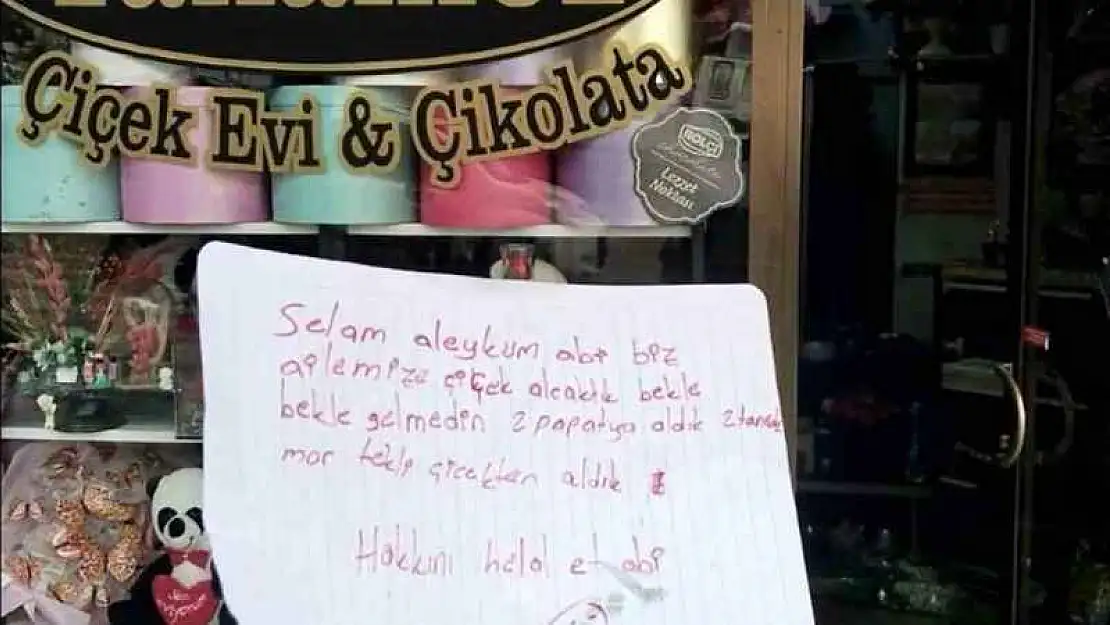 Çiçek Evi & Çikolata
BOLÇİ
chocolate
Lezzet
Noktası
Selam aleykum abi biz
ailemize çiçek alcaktık bekle
bekle gelmedin 2 papatya aldık 2 tanede
mor tekli çiçekten aldık
Hakkını helal et abi